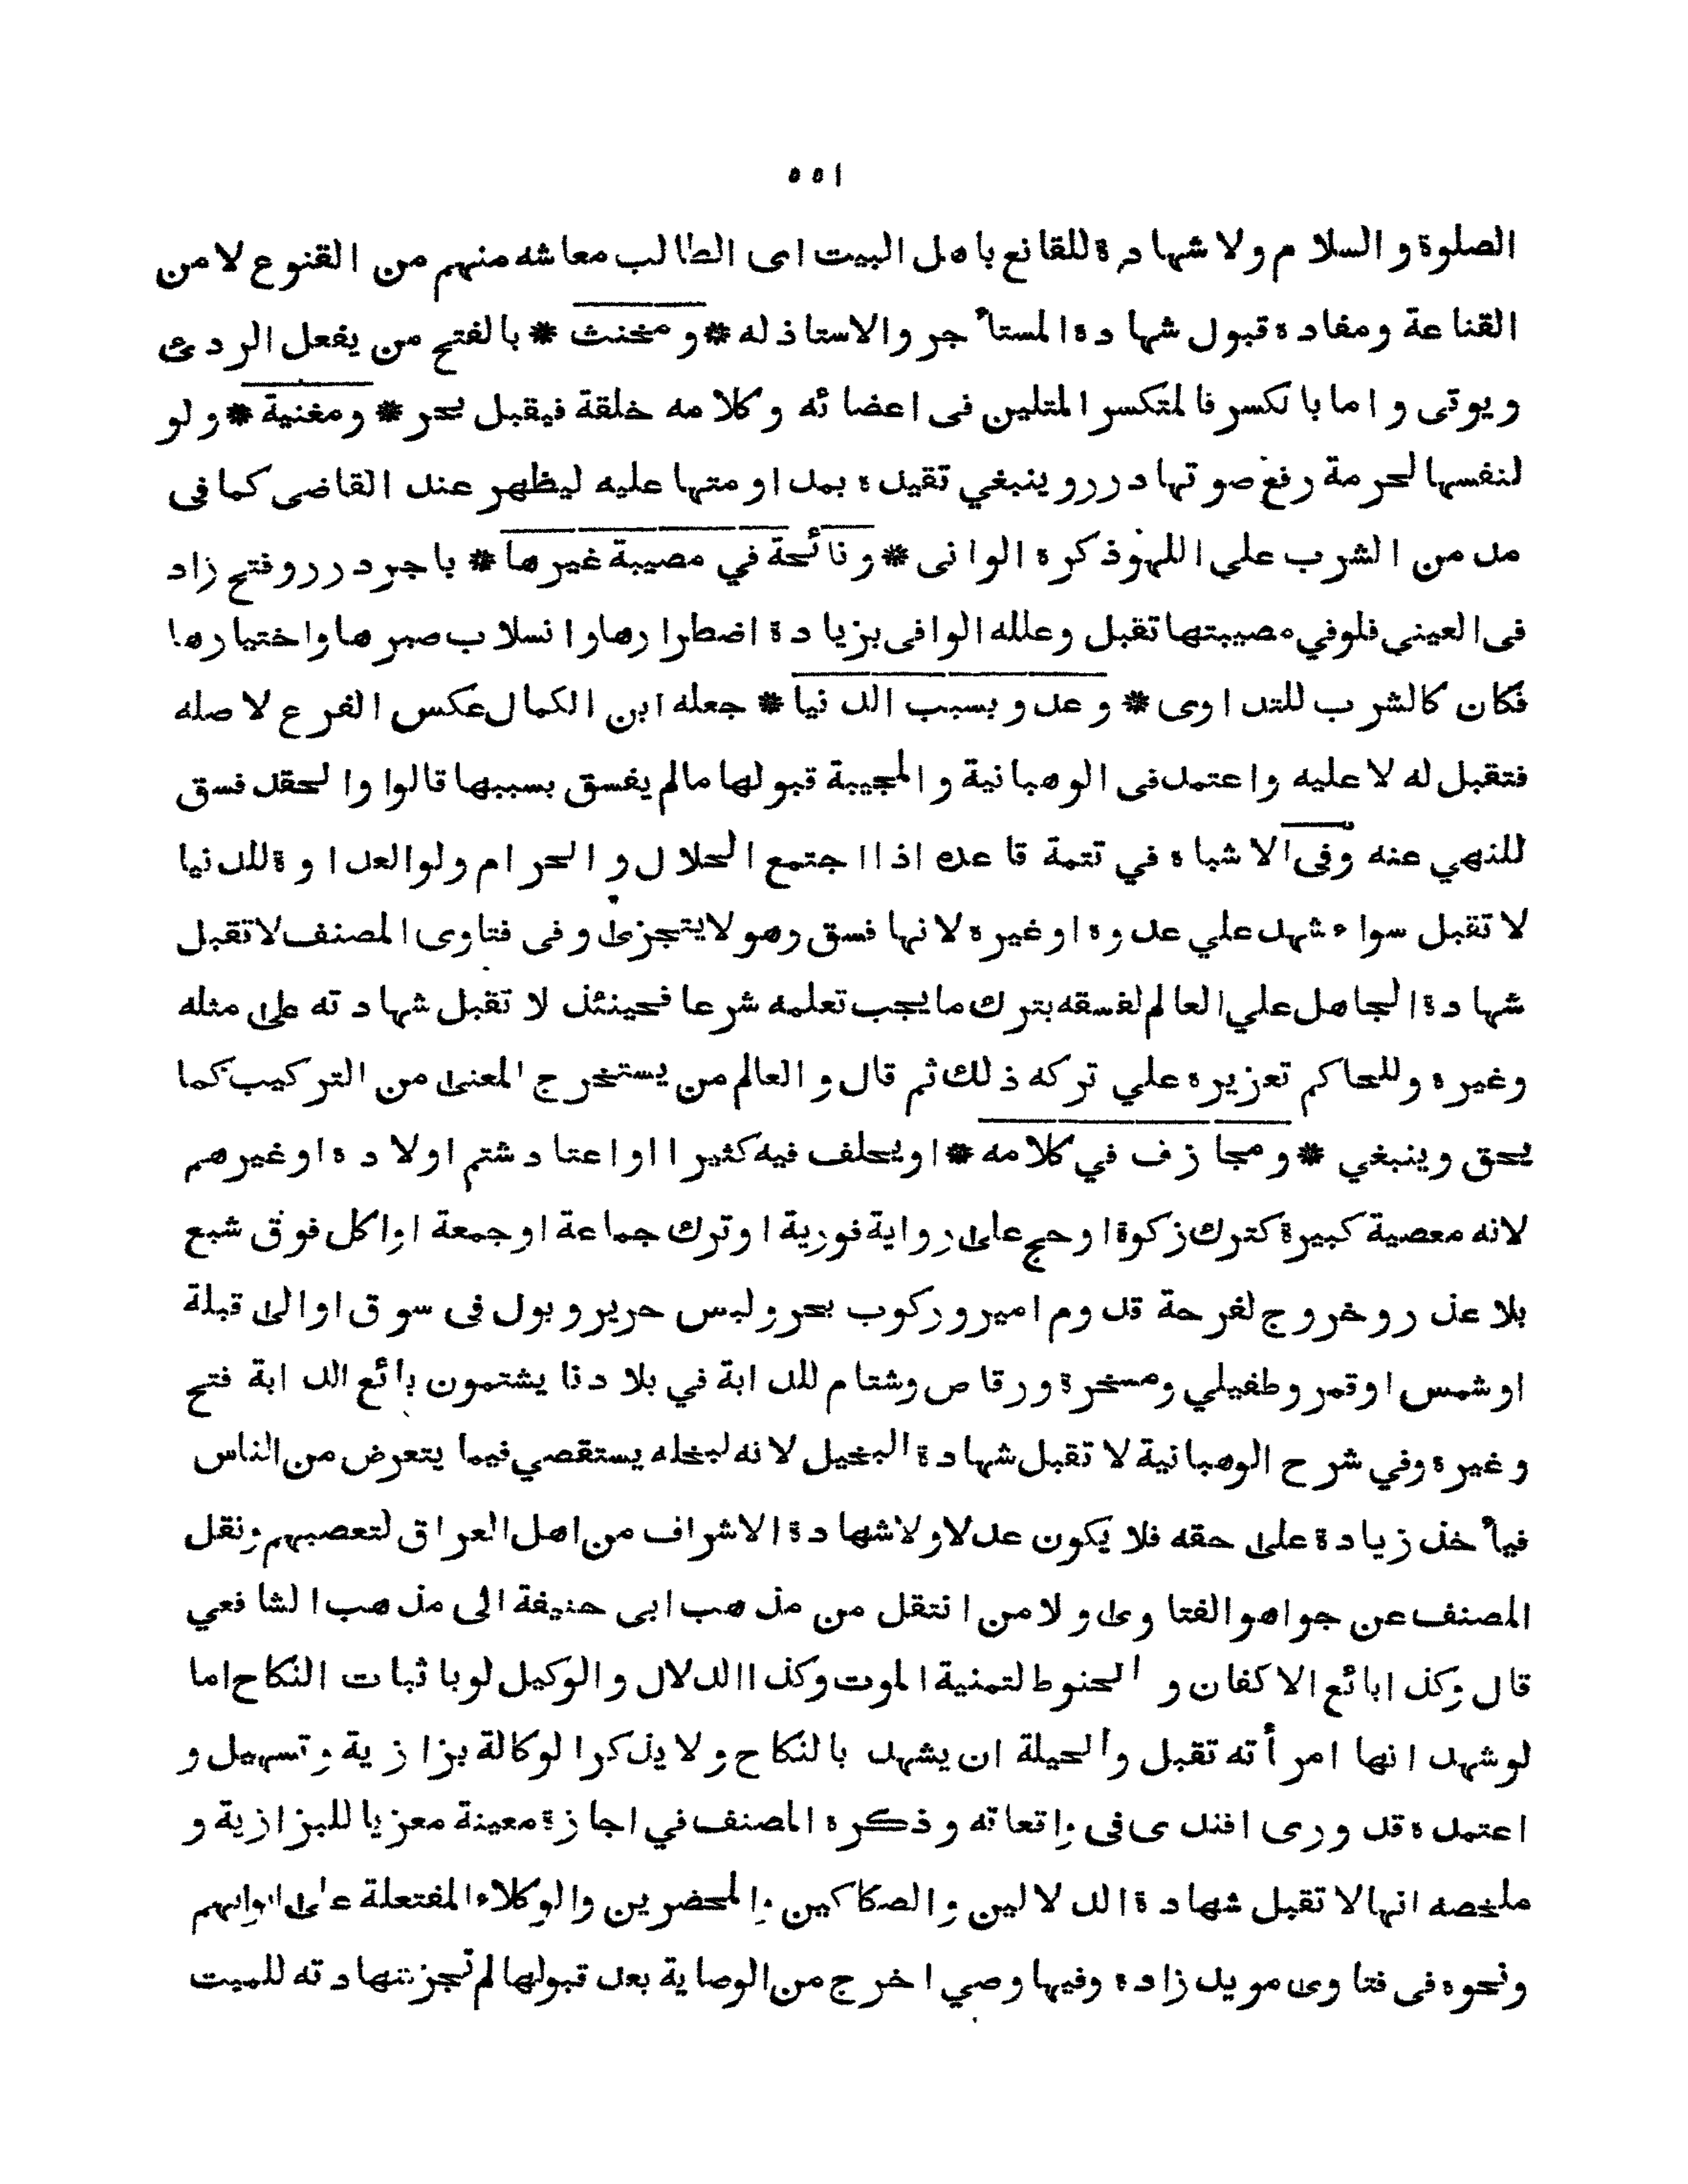 ٥٥١
الصلوة و السلام ولا شهادة للقانع باهل البيت اى الطالب معاشه منهم من القنوع لا من
القناعة ومفاده قبول شهادة المستأجر والاستاذ له * و مخنث * بالفتح من يفعل الردئ
ويوتى و اما با لكسر فا لمتكسر المتلين فى اعضائه و كلامه خلقة فيقبل بحر * ومغنية * ولو
لنفسها لحرمة رفع صوتها درر و ينبغي تقيده بمداومتها عليه ليظهر عند القاضى كما فى
مد من الشرب علي اللهو ذكره الوانى * و نائحة في مصيبة غيرها * باجر درر و فتح زاد
فى العيني فلو في مصيبتها تقبل وعلله الوافى بزيادة اضطرارها وانسلاب صبرها واختيارها
فكان كالشرب للتداوى * و عدو بسبب الدنيا * جعله ابن الكمال عكس الفرع لاصله
فتقبل له لا عليه واعتمد فى الوهبانية و المجيبة قبولها مالم يفسق بسببها قالوا والحقد فسق
للنهي عنه وفى الاشباه في تتمة قاعده اذا اجتمع الحلال و الحرام ولو العداوة للدنيا
لا تقبل سواء شهد علي عدوه او غيره لانها فسق وهو لا يتجزئ و فى فتاوى المصنف لا تقبل
شهادة الجاهل علي العالم لفسقه بترك ما يجب تعلمه شرعا فحينئذ لا تقبل شهادته على مثله
وغيره وللحاكم تعزيره علي تركه ذلك ثم قال و العالم من يستخرج المعنى من التركيب كما
يحق وينبغي * و مجازف في كلامه * او يحلف فيه كثيرا او اعتاد شتم اولاده او غيرهم
لانه معصية كبيرة كترك زكوة او حج على رواية فورية او ترك جماعة او جمعة او اكل فوق شبع
بلا عذر و خروج لفرحة قدوم امير و ركوب بحر و لبس حرير و بول فى سوق او الى قبلة
او شمس او قمر و طفيلي ومسخرة و رقاص وشتام للدابة في بلادنا يشتمون بائع الدابة فتح
و غيره وفي شرح الوهبانية لا تقبل شهادة البخيل لانه لبخله يستقصي فيما يتعرض من الناس
فيأخذ زيادة على حقه فلا يكون عدلا ولا شهادة الاشراف من اهل العراق لتعصبهم ونقل
المصنف عن جواهو الفتاوى و لا من انتقل من مذهب ابى حنيفة الى مذهب الشافعي
قال وكذا بائع الاكفان و الحنوط لتمنية الموت وكذا الدلال و الوكيل لو باثبات النكاح اما
لو شهد انها امرأته تقبل والحيلة ان يشهد بالنكاح و لا يذكر الوكالة بزازية وتسهيل و
اعتمده قدورى افندى فى واتعاته و ذكره المصنف في اجازة معينة معزيا للبزازية و
ملخصه انها لا تقبل شهادة الدلالين و الصكاكين والمحضرين والوكلاء المفتعلة على ابوابهم
ونحوه فى فتاوى مويد زاده وفيها وصي اخرج من الوصاية بعد قبولها لم تجز شهادته للميت